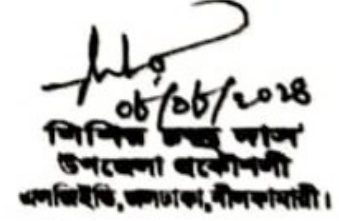 ০৮/০৮/২০২৪
শিশির চন্দ্র দাস
উপজেলা প্রকৌশলী
এলজিইডি, জলঢাকা, নীলফামারী।